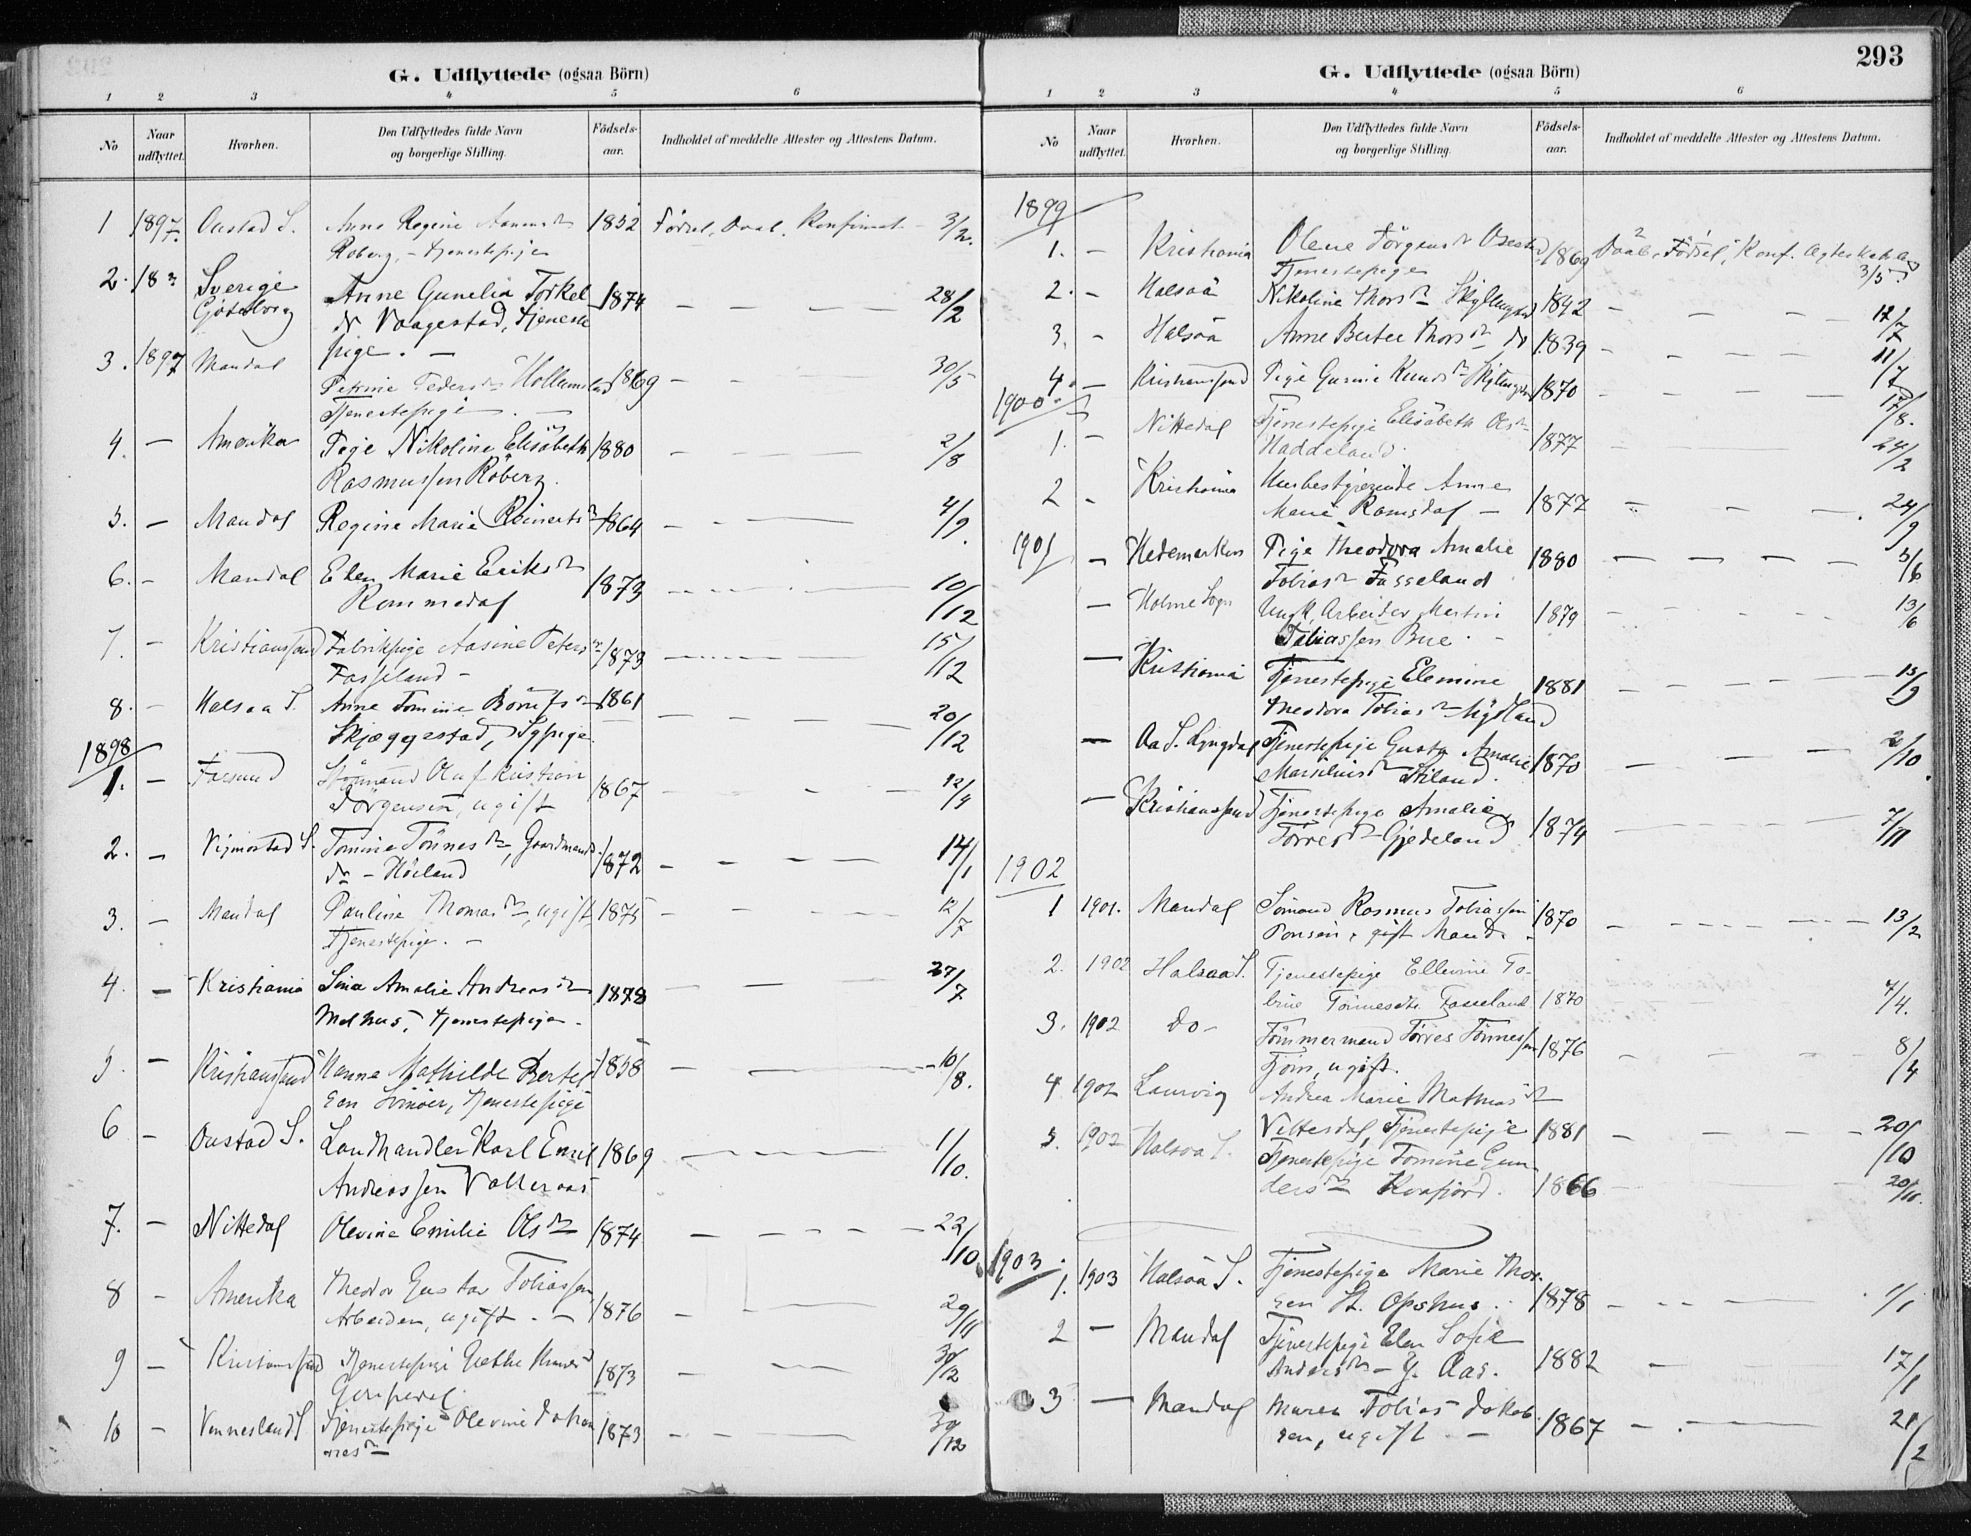 G. Udflyttede (ogsaa Börn)
1 2 3 4 5 6
No Naar udflyttet. Hvorhen. Den Udflyttedes fulde Navn og borgerlige Stilling. Födsels-aar. Indholdet af meddelte Attester og Attestens Datum.
1 1897. Oustad S. Anne Regine 1852 Födsel, Daab, Konfirmat. 3/2.
Roberg, - tjenestepige
2. 18 Sverige Anne Gunelia Torkel 1874 — — — 28/2
Göteborg dr Vaagestad, Tjeneste
pige. —
3. 1897 Mandal Petrine Pedersdr 1869 — — — 30/5
Tjenestepige
4. — Amerika Pige Nikoline Elisabeth 1880 — — — 2/8
Rasmussen Röberg.
5. — Mandal Regine Marie Reinertsdr 1864 — — — 4/9.
6. — Mandal Elen Marie Eriksdr 1873 — — — 10/12
Rommedal
7. — Kristianssand Fabrikpige Aasine Petersdr 1873 — — — 15/12
Fasseland -
8. — Halsaa S. Anne Tomine 1861 — — — 20/12
Skjæggestad, Sypige.
1898
1. — Farsund Olaf Kristian 1867 — — — 12/4
Jörgensen, ugift
2. — Vigmostad S. Tomine Tönnesdr, Gaardmands 1872 — — — 14/1
dr - Höiland
3. — Mandal Pauline Thomasdr, ugift 1875 — — — 12/7
Tjenestepige. —
4. — Kristiania Sina Amalie Andreasdr 1878 — — — 27/7
Melhus, tjenestepige.
5. — Kristianssand Hanna Mathilde Bertel 1858 — — — 10/8.
sen tjenestepige
6 — Oustad S. Landhandler Karl Emil 1869 — — — 1/10.
Andreassen Valleraas
7. — Nittedal Olevine Emilie Olsdr 1874 — — — 22/10
8 — Amerika Theodor Gustav Tobiassen 1876 — — — 29/11
Arbeider, ugift. —
9 — Kristianssand Tjenestepige Grethe 1873 — — 30/12
10 — Venneslands S. Tjenestepige Olevine Johan 1873 — — — 30/12
nesdr —
293
G. Udflyttede (ogsaa Börn)
1 2 3 4 5 6
No Naar udflyttet. Hvorhen. Den Udflyttedes fulde Navn og borgerlige Stilling. Födsels-aar. Indholdet af meddelte Attester og Attestens Datum.
1899
1. — Kristiania Olene Jörgensdr 1869 Daab, Födsel, Konf. 3/5
Tjenestepige
2. — Halsaa Nikoline Thorsdr 1842 — — — 12/7
3. — Halsaa Anne Bertee Thorsdr do 1839 — — — 11/7
4. — Kristianssand Pige Gurine Knudsdr 1870 — — — 17/8.
1900.
1. — Nittedal Tjenestepige Elisabeth Olsdr 1877 — — 24/2
Haddeland.
2 — Kristiania Husbestyrerinde Anne 1877 — — — 24/9
Marie Ramsdal —
1901 — Hedemarken Pige Theodora Amalie 1880 — — — 3/6
Tobiasdr Fasseland
— Holme Sogn Ungk. Arbeider Martin 1879 — — — 13/6
Tobiassen Bue. -
— Kristiania Tjenestepige Elemine 1881 — — — 13/9
Theodora Tobiasdr
— Aa S. Lyngdal Tjenestepige Gusta Amalie 1870 — — — 2/10.
— Kristianssand Tjenestepige Amalie 1874 — — — 7/11
Torresdr Gjedeland
1902
1 1901. Mandal Sömand Rasmus Tobiassen 1870 — — — 13/2
gift Mand.
2. 1902 Halsaa S. Tjenestepige Ellevine To-
bine Tönnesdtr. Fasseland 1870 7/4.
3. 1902 do- Tömmermand Törres Tönnessen 1876 — — 8/4
ugift.
4 1902 Laurvig Andrea Marie Mathiasdr
Vittersdal, Tjenestepige 1881 — — — 20/10
5. 1902 Halsaa S. Tjenestepige Tomine Gun-
dersdr Kvafjord. 1866 20/11.
1903.
1. 1903 Halsaa S. Tjenestepige Marie Thor-
sen St. Opshus. 1878 — — — 1/1
2 — Mandal Tjenestepige Elen Sofie 1882 — 17/1
Andersdr - Y. Aas.
3 — Mandal Maren Tobias Jakob- 1867 — — 21/2
sen, ugift. —